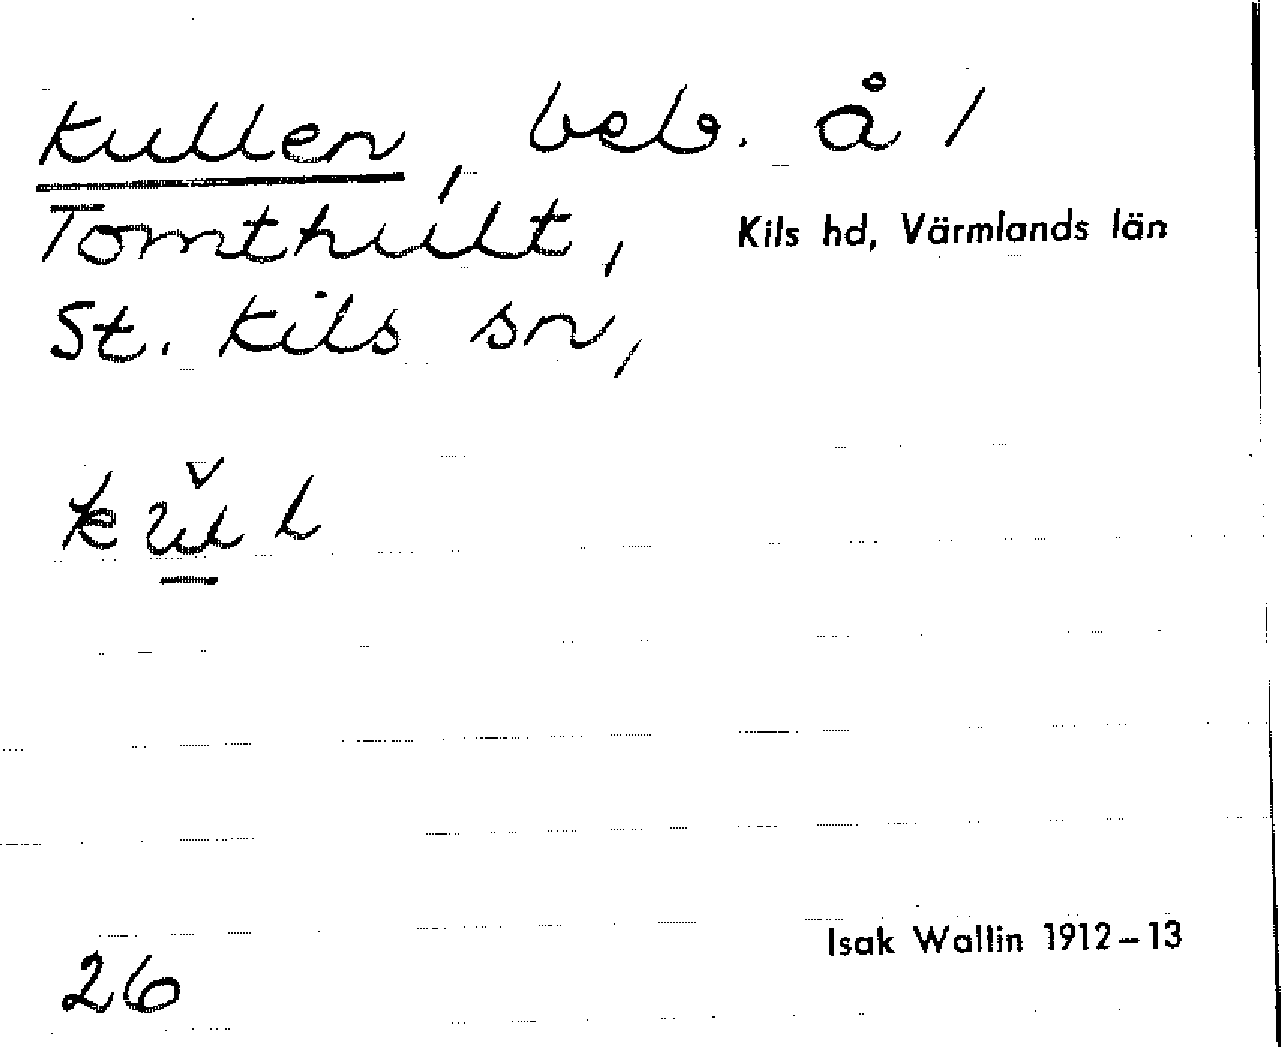 Kullen, beb. å 1
Tomthult, Kils hd, Värmlands län
St. Kils sn,
26
Isak Wallin 1912–13